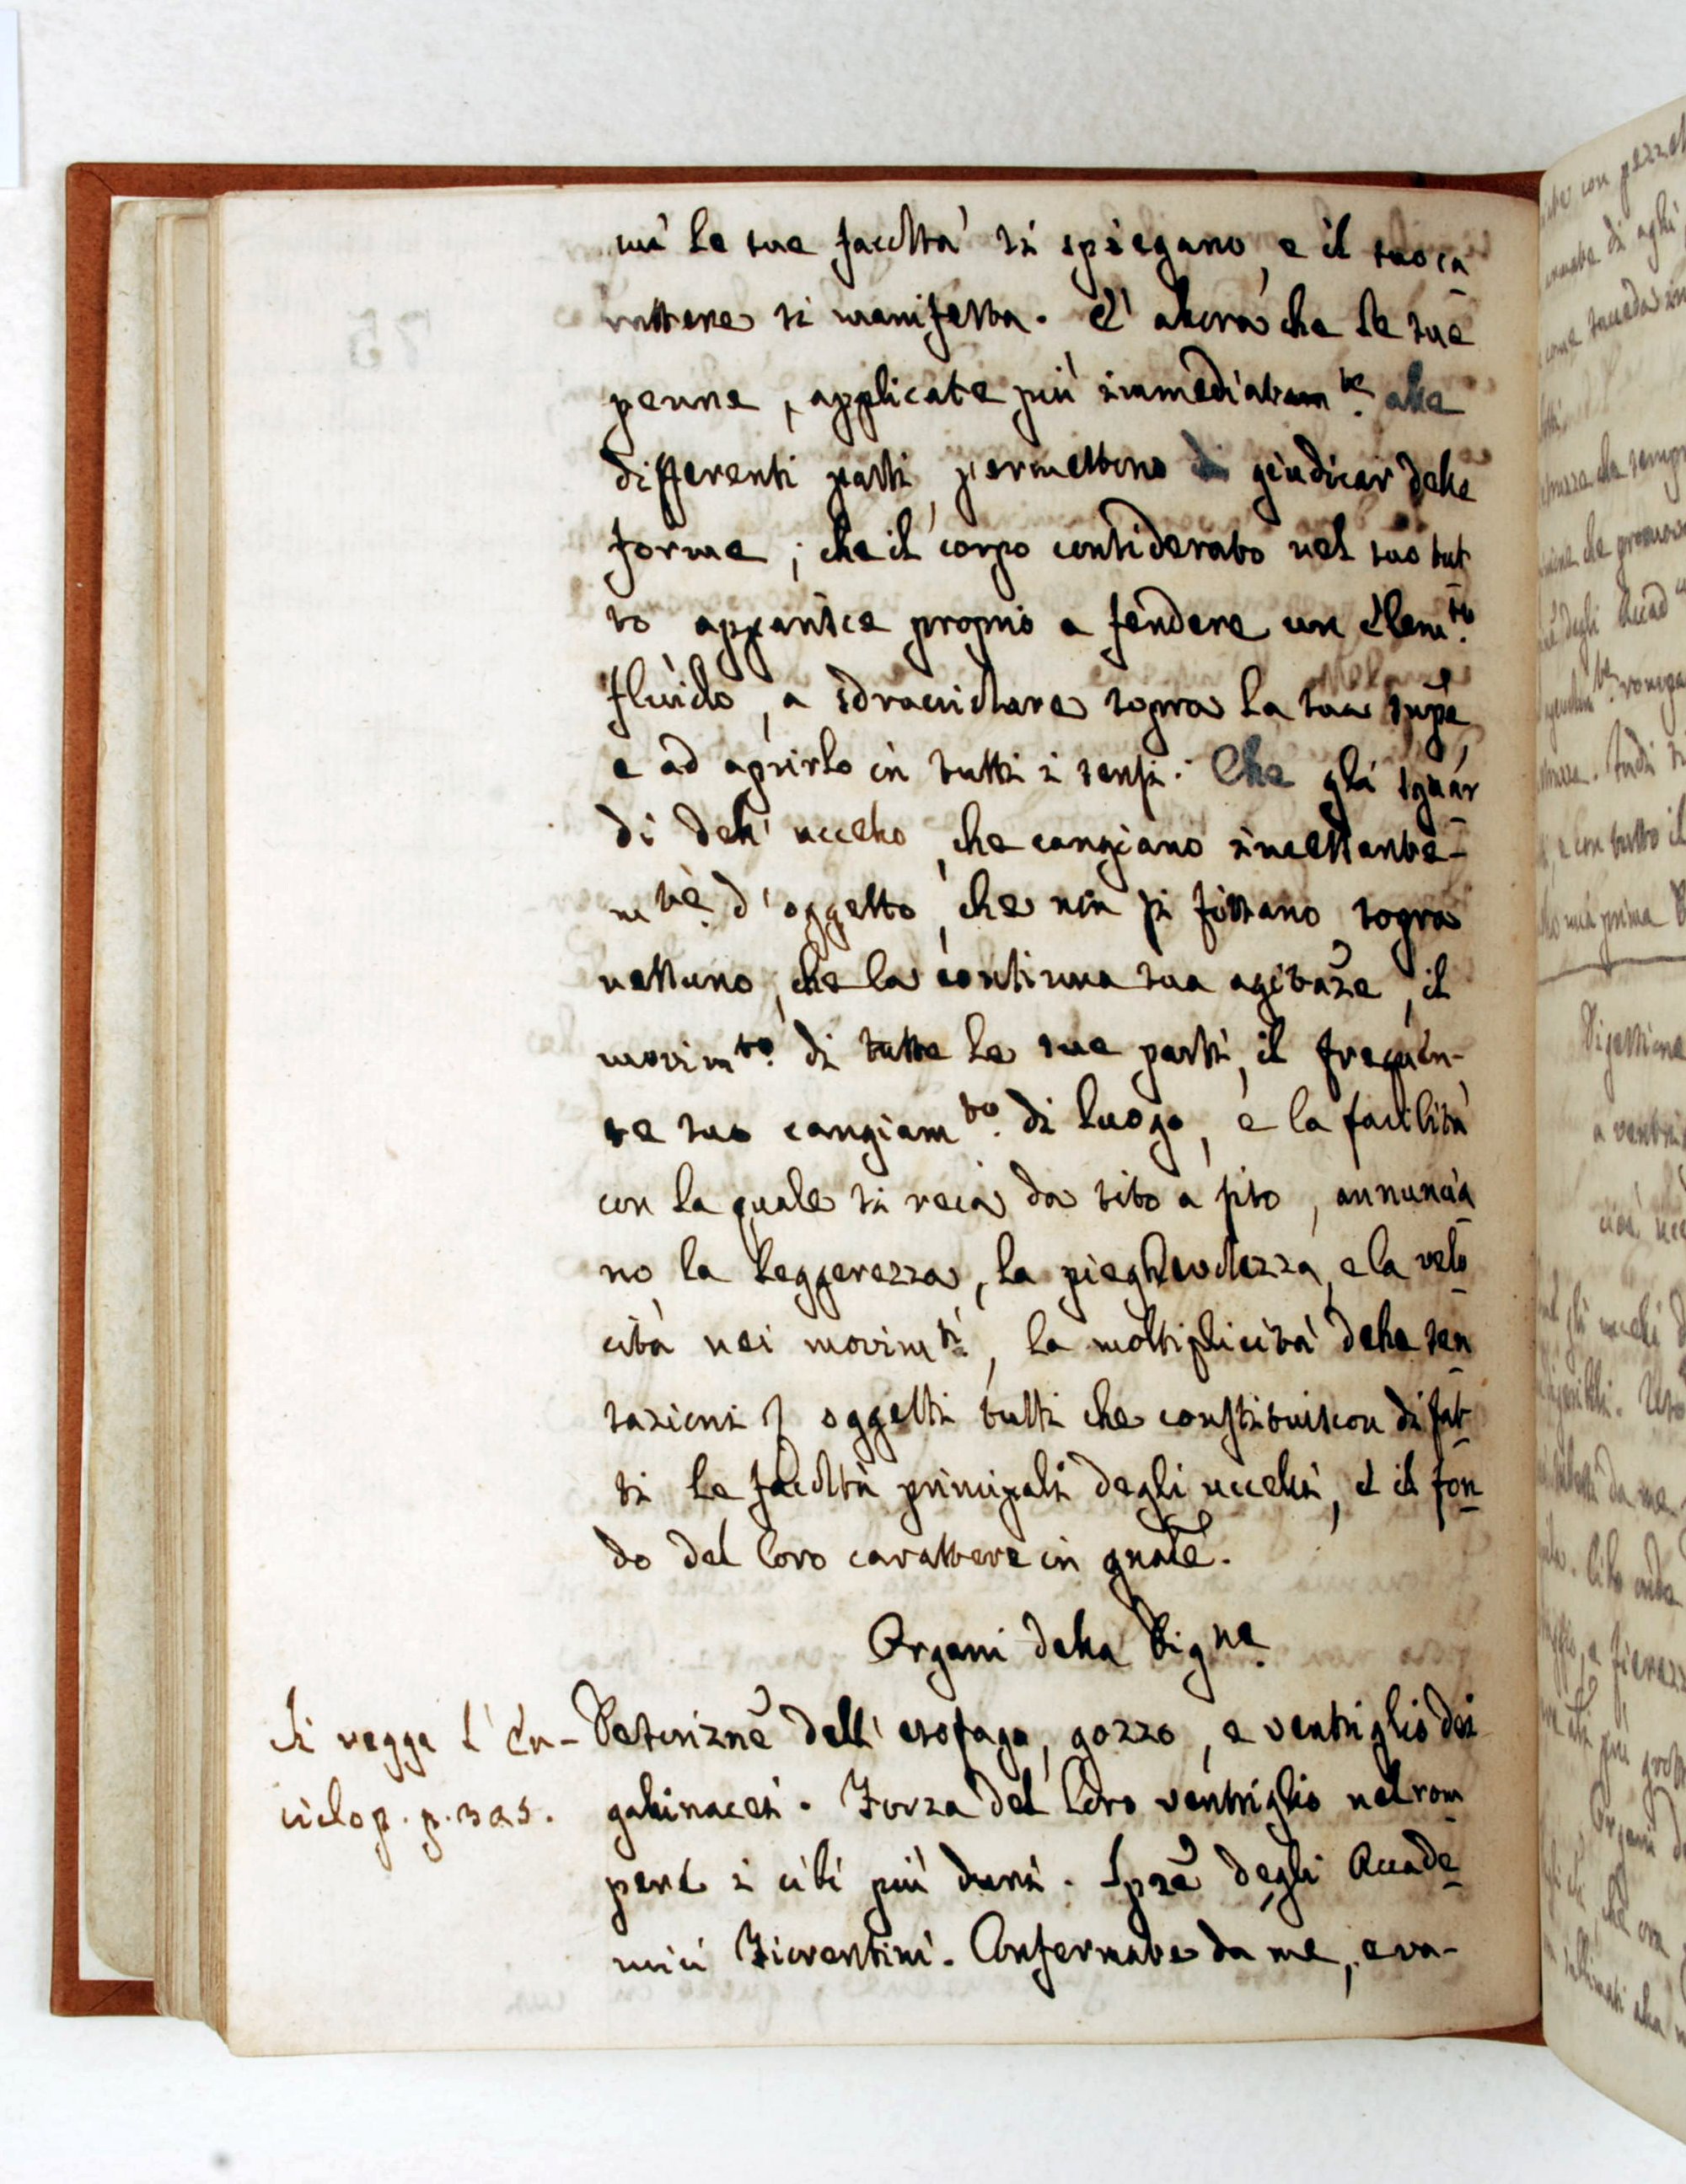 cui le sue facoltà si spiegano, e il suo ca
rattere si manifesta. È allora che le sue
penne, applicate più immediatam.te alle
differenti parti, permettono di giudicar delle
forme; che il corpo considerato nel suo tut
to apparisce proprio a fendere un elem.to
fluido, a sdrucciolare sopra la sua supe,
e ad aprirlo in tutti i sensi. Che gli sguar
di dell' uccello, che cangiano incessante-
m.te d'oggetto, che non si fissano sopra
nessuno, che la continua sua agitaze, il
movim.to di tutte le sue parti, il frequen-
te suo cangiam.to di luogo, e la facilità
con la quale si reca da sito a sito, annuncia
no la leggerezza, la pieghevolezza, e la velo
cità nei movim.ti, la moltiplicità delle sen
sazioni, oggetti tutti che constituiscon di fat
ti le facoltà principali degli uccelli, e il fon
do del loro carattere in gnale.
Organi della Dig.ne
Si vegga l' En-
ciclop. p. 325.
Descrizne dell' esofago, gozzo, e ventriglio dei
gallinacei. Forza del loro ventriglio nel rom
pere i cibi più duri. Spze degli Accade
mici Fiorentini. Confermate da me, e va-